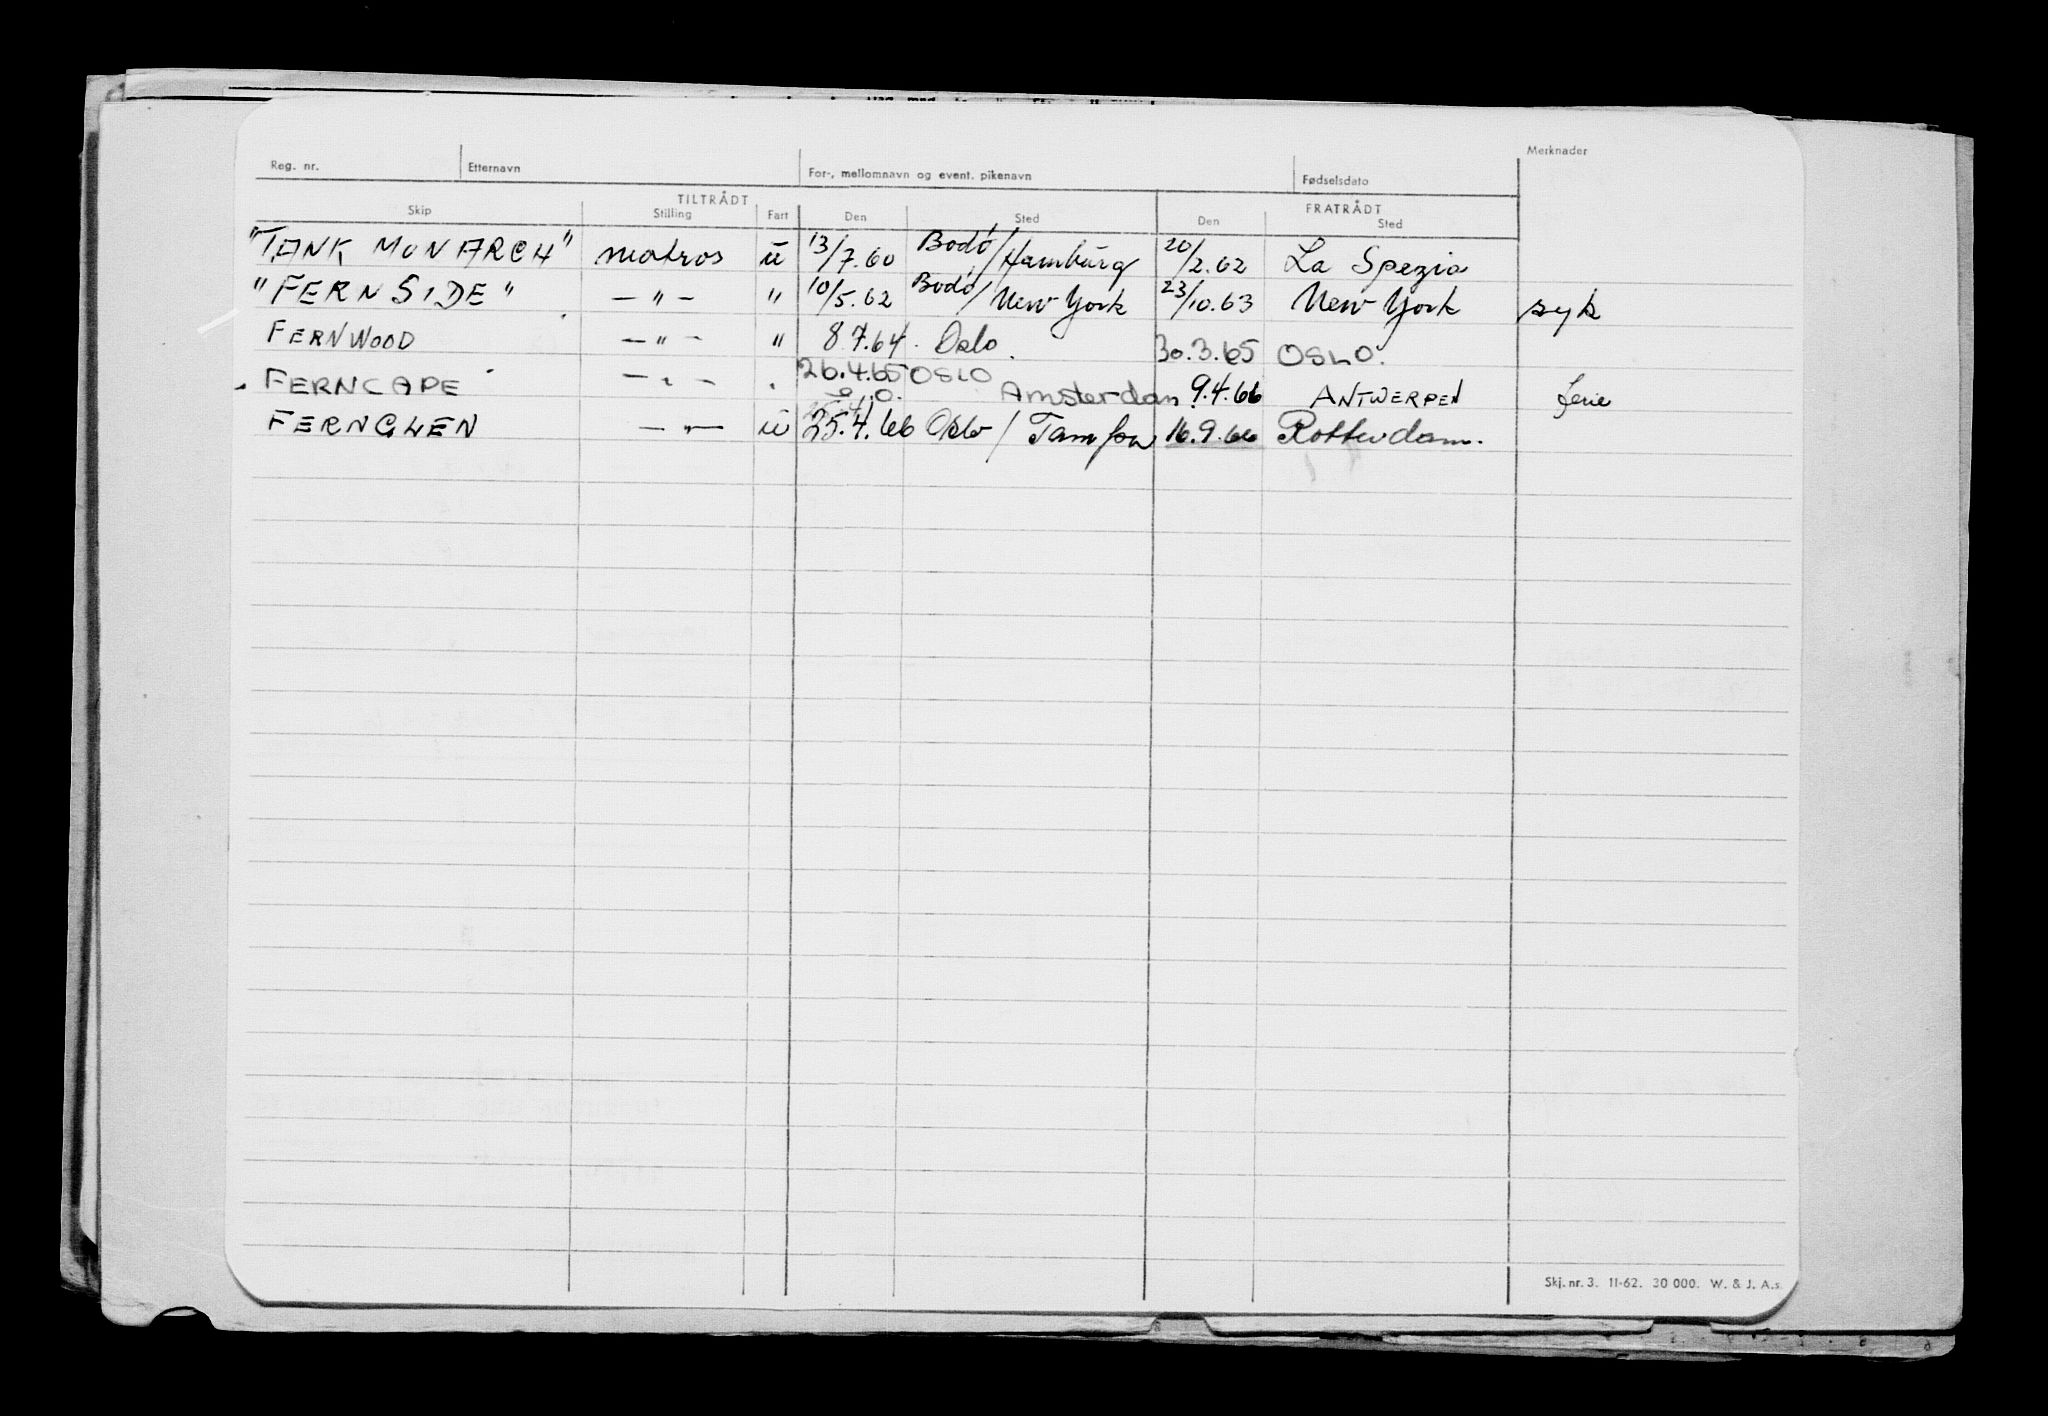 Reg. nr. Etternavn For-, mellomnavn og event. pikenavn Fødselsdato Merknader
TILTRÅDT FRATRÅDT
Skip Stilling Fart Den Sted Den Sted
"TANK MONARCH" matros u 13/7.60 Bodø/Hamburg 20/2.62 La Spezia
"FERNSIDE" — " — " 10/5.62 Bodø/New York 23/10.63 New York syk
FERNWOOD — " — " 8.7.64. Oslo. 30.3.65 OSLO.
FERNCAPE — " — " 26.4.65 OSLO Amsterdam 9.4.66 ANTWERPEN ferie
FERNGLEN — " — u 25.4.66 Oslo / 16.9.66 Rotterdam.
Skj. nr. 3. 11-62. 30 000. W. & J. A.s.